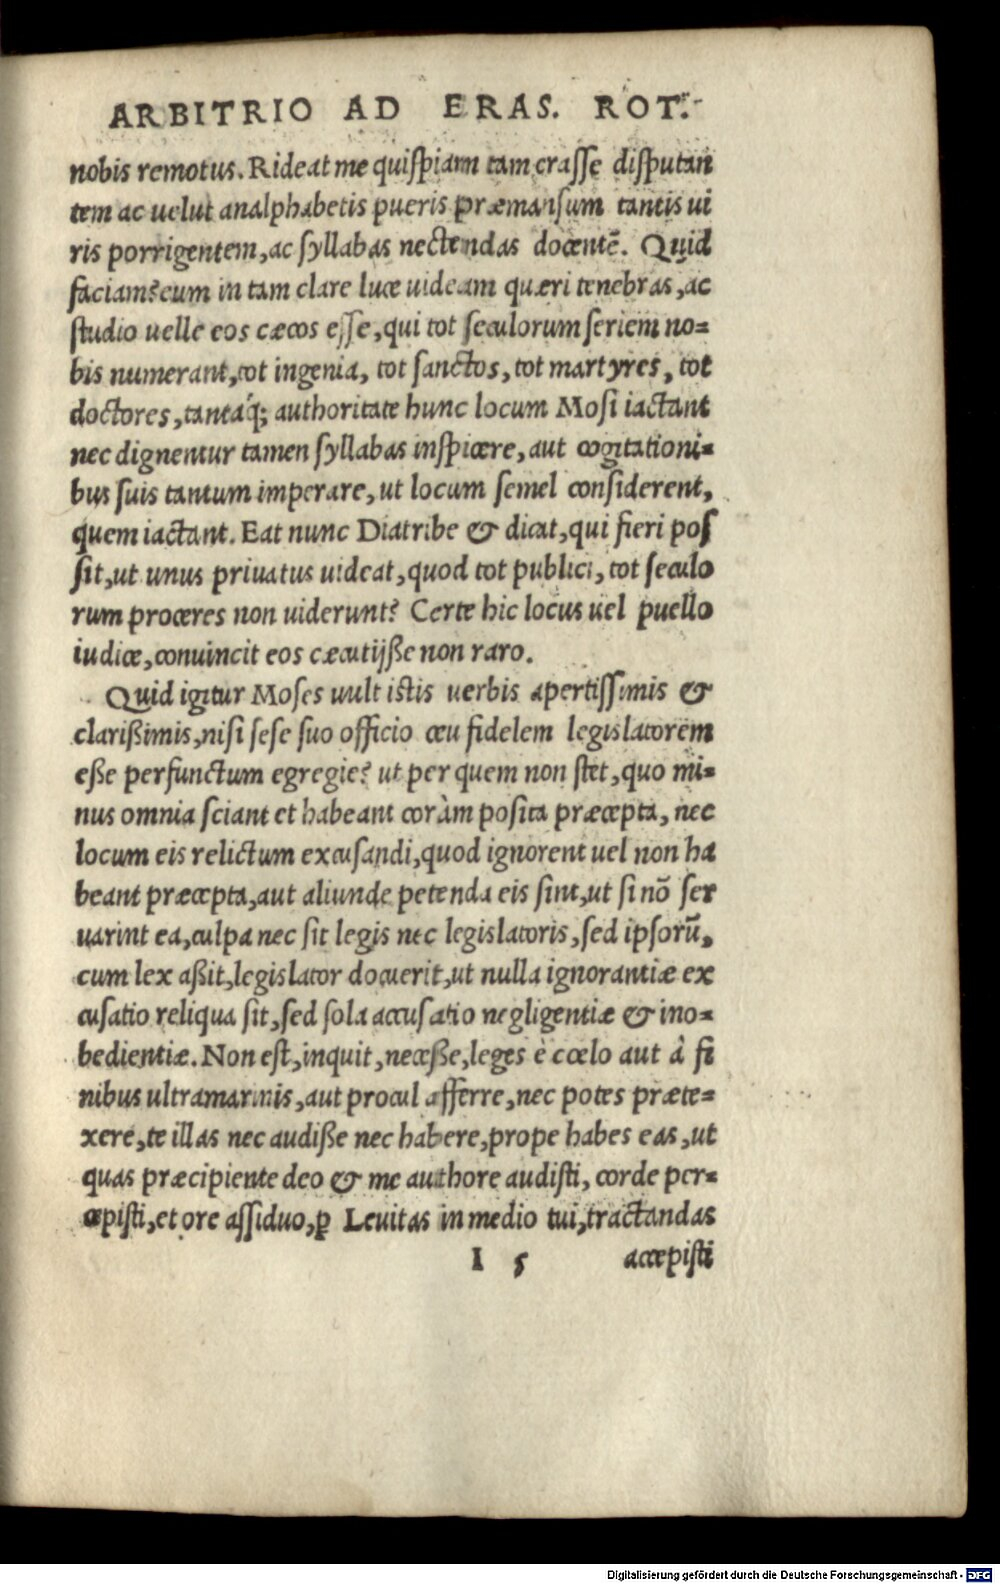 ARBITRIO AD ERAS. ROT.
nobis remotus. Rideat me quiſpiam tam craſſe diſputan
tem ac uelut analphabetis pueris præmanſum tantis ui
ris porrigentem, ac ſyllabas nectendas docentē. Quid
faciam? cum in tam clare luce uideam quæri tenebras, ac
ſtudio uelle eos cæcos eſſe, qui tot ſeculorum ſeriem no=
bis numerant, tot ingenia, tot ſanctos, tot martyres, tot
doctores, tantaq́; authoritate hunc locum Moſi iactant
nec dignentur tamen ſyllabas inſpicere, aut cogitationi=
bus ſuis tantum imperare, ut locum ſemel conſiderent,
quem iactant. Eat nunc Diatribe & dicat, qui fieri poſ
ſit, ut unus priuatus uideat, quod tot publici, tot ſeculo
rum proceres non uiderunt? Certe hic locus uel puello
iudice, conuincit eos cæcutijſſe non raro.
Quid igitur Moſes uult iſtis uerbis apertiſſimis &
clarißimis, niſi ſeſe ſuo officio ceu fidelem legislatorem
eße perfunctum egregie? ut per quem non ſtet, quo mi=
nus omnia ſciant et habeant coràm poſita præcepta, nec
locum eis relictum excuſandi, quod ignorent uel non ha
beant præcepta, aut aliunde petenda eis ſint, ut ſi nō ſer
uarint ea, culpa nec ſit legis nec legislatoris, ſed ipſorū,
cum lex aßit, legislator docuerit, ut nulla ignorantiæ ex
cuſatio reliqua ſit, ſed ſola accuſatio negligentiæ & ino=
bedientiæ. Non eſt, inquit, neceße, leges è cœlo aut à fi
nibus ultramarinis, aut procul afferre, nec potes præte=
xere, te illas nec audiße nec habere, prope habes eas, ut
quas præcipiente deo & me authore audiſti, corde per=
cepiſti, et ore aſſiduo, ꝑ Leuitas in medio tui, tractandas
I 5 accepiſti
Digitalisierung gefördert durch die Deutsche Forschungsgemeinschaft - DFG